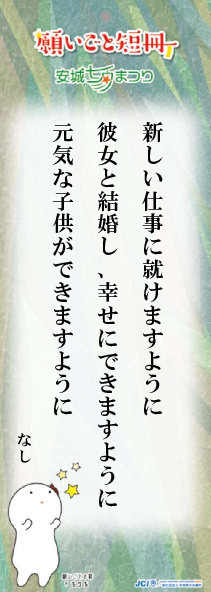 願いごと短冊
安城七夕まつり
新しい仕事に就けますように
彼女と結婚し、幸せにできますように
元気な子供ができますように
なし
JCI